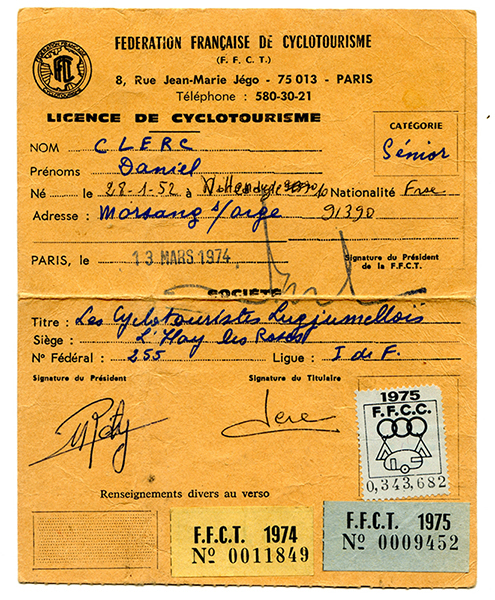 FEDERATION FRANÇAISE DE CYCLOTOURISME
(F. F. C. T.)
8, Rue Jean-Marie Jégo - 75 013 - PARIS
Téléphone : 580-30-21
LICENCE DE CYCLOTOURISME
CATÉGORIE
Sénior
NOM CLERC
Prénoms Daniel
Né le 28-1-52 à Nationalité Frse
Adresse : Morsang s/orge 91390
PARIS, le 13 MARS 1974
Signature du Président
de la F.F.C.T.
SOCIÉTÉ
Titre : Les Cyclotouristes
Siège : L'Hay les Roses
N° Fédéral : 255 Ligue : I de F.
Signature du Président Signature du Titulaire
1975
F.F.C.C.
0,343,682
Renseignements divers au verso
F.F.C.T. 1974
No 0011849
F.F.C.T. 1975
No 0009452